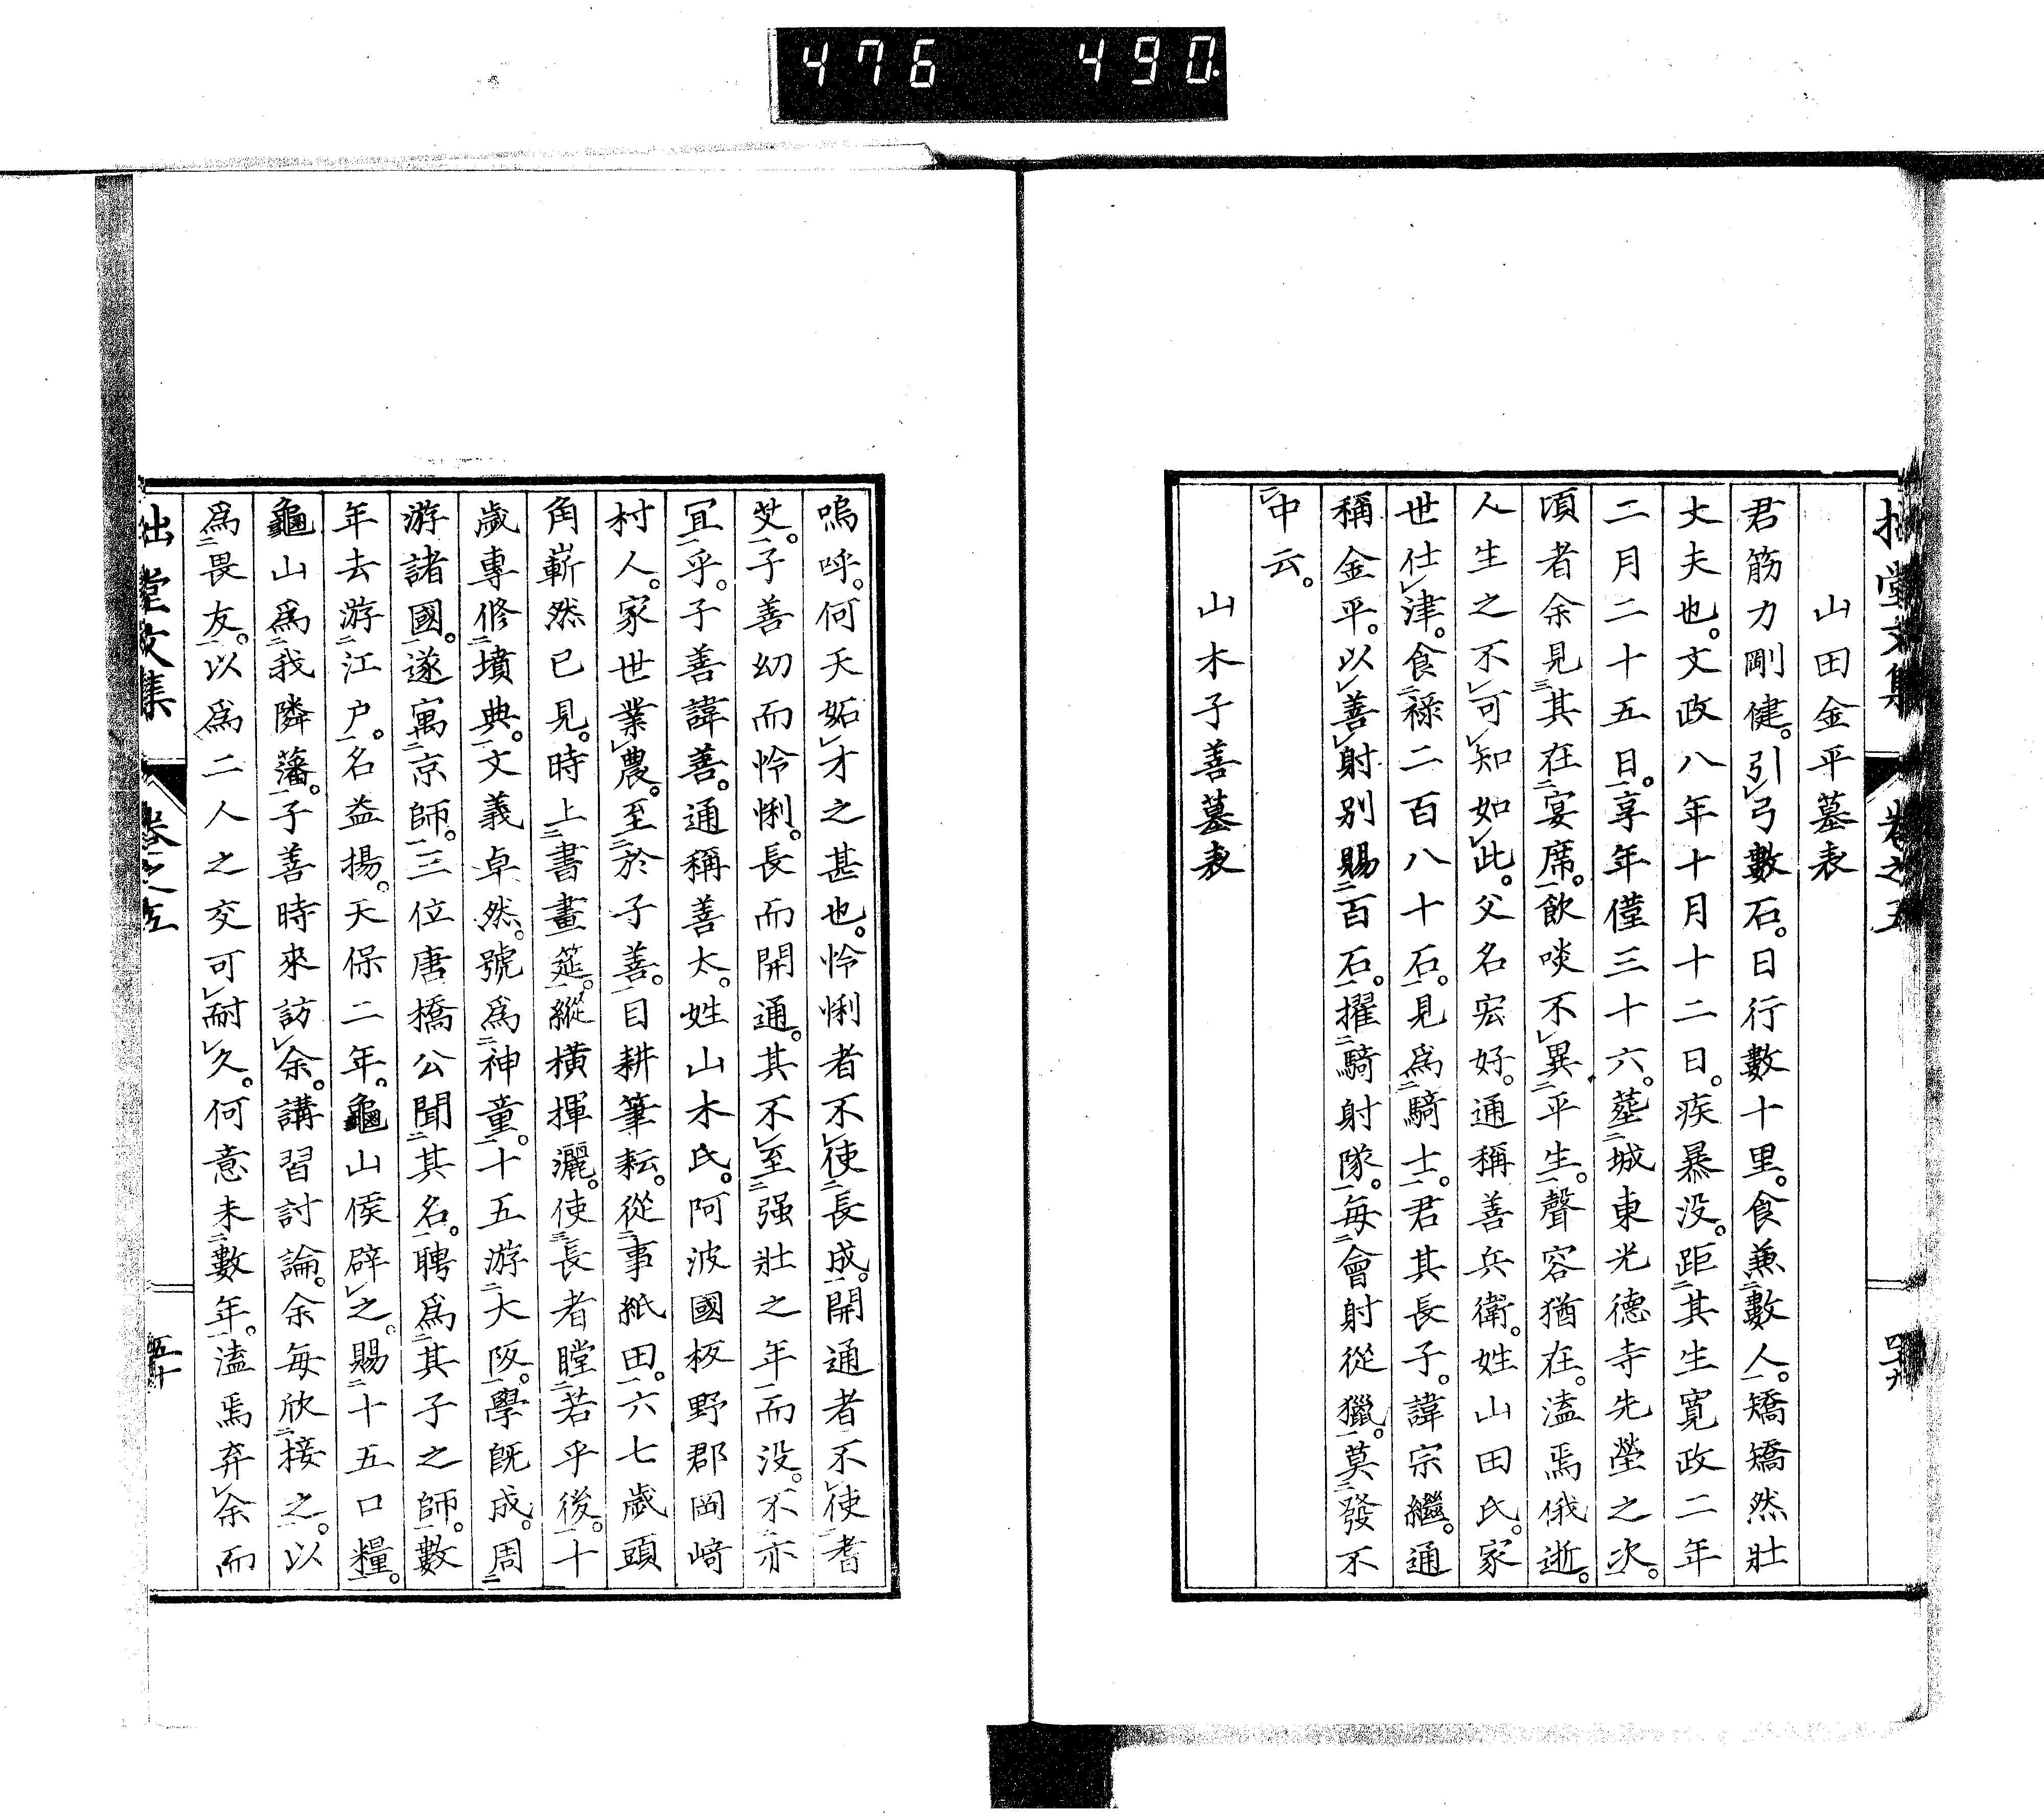 476 490
拙堂文集 卷之五 四十九
山田金平墓表
君筋力剛健。引弓數石。日行數十里。食兼數人。矯矯然壯
丈夫也。文政八年十月十二日。疾暴没。距其生寛政二年
二月二十五日。享年僅三十六。葬城東光德寺先塋之次。
頃者余見其在宴席。飲啖不異平生。聲容猶在。溘焉俄逝。
人生之不可知如此。父名宏好。通稱善兵衛。姓山田氏。家
世仕津。食祿二百八十石。見爲騎士。君其長子。諱宗繼。通
稱金平。以善射別賜百石。擢騎射隊。每會射從獵。莫發不
中云。
山木子善墓表
嗚呼。何天妬才之甚也。怜悧者不使長成。開通者不使耆
艾。子善幼而怜悧。長而開通。其不至强壯之年而没。不亦
宜乎。子善諱善。通稱善太。姓山木氏。阿波國板野郡岡﨑
村人。家世業農。至於子善。目耕筆耘。從事紙田。六七歲頭
角嶄然已見。時上書畫筵。縱横揮灑。使長者瞠若乎後。十
歲專修墳典。文義卓然。號爲神童。十五游大阪。學旣成。周
游諸國。遂寓京師。三位唐橋公聞其名。聘爲其子之師。數
年去游江戶。名益揚。天保二年。龜山侯辟之。賜十五口糧。
龜山爲我隣藩。子善時來訪余。講習討論。余每欣接之。以
爲畏友。以爲二人之交可耐久。何意未數年。溘焉弃余而
拙堂文集 卷之五 五十